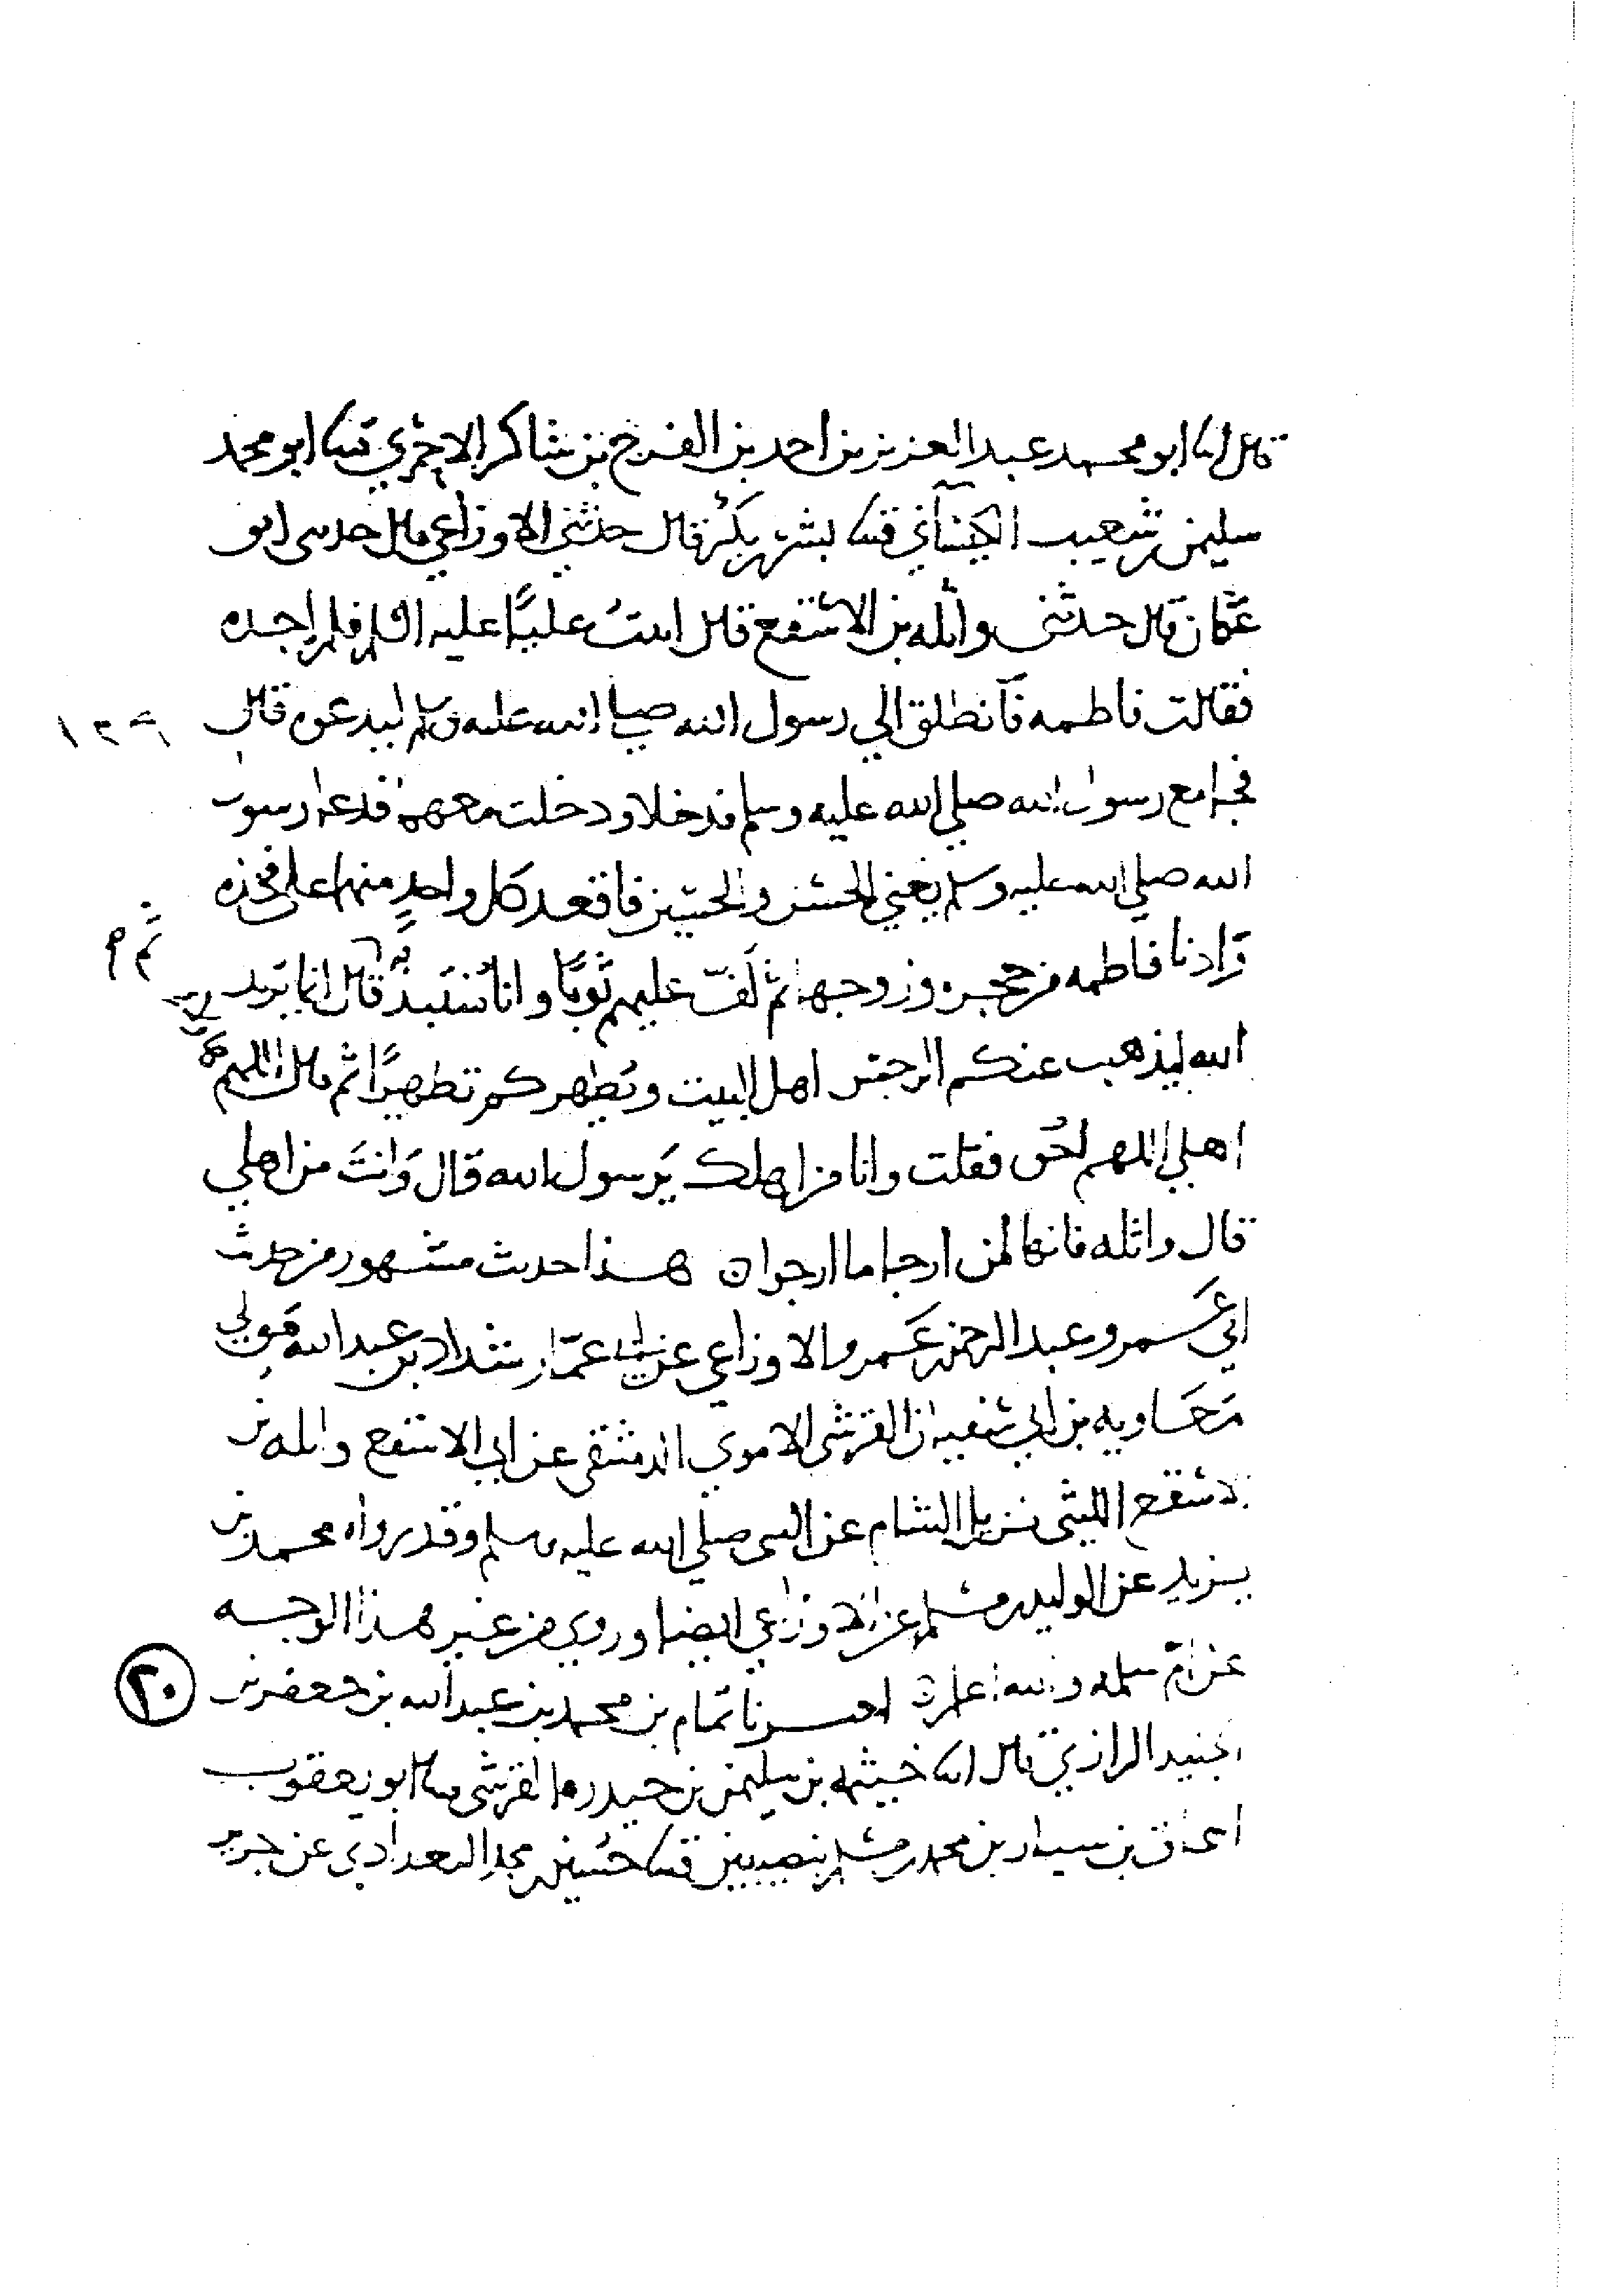 قال انا ابو محمد عبد العزيز بن احمد بن الفرج بن شاكر الاحمري قثنا ابو محمد
سليمن بن شعيب الكيساني قثنا بشر بن بكر قال حدثني الاوزاعي قال حدثني ابو
عمار قال حدثني واثله بن الاسقع قال اتيت عليًا عليه السلم فلم اجده
فقالت فاطمه فانطلق الي رسول الله صلي الله عليه وسلم ليدعوه قال
فجا مع رسول الله صلي الله عليه وسلم فدخلا ودخلت معهما فدعا رسول
الله صلي الله عليه وسلم يعني الحسن والحسين فاقعد كل واحدٍ منهما علي فخذه
وادنا فاطمه من حجره وزوجها ثم لَفّ عليهم ثوبًا وانا مُنتَبذ قال انما يريد
الله ليذهب عنكم الرجس اهل البيت ويطهركم تطهيرًا ثم قال اللهم هولا
اهلي اللهم احق فقلت وانا من اهلك يرسول الله قال وَانتَ من اهلي
قال واثله فانها لمن ارجا ما ارجوا ن هذا حديث مشهور من حديث
ابي عَمرو عبد الرحمن بن عَمرو الاوزاعي عن ابي عمّار شداد بن عبد الله مَولي
مَعَاويه بن ابي سفيان القرشي الاموي الدمشقي عن ابي الاسقع واثله بن
الاسقع الليثي نزيل الشام عن النبي صلي الله عليه وسلم وقد رواه محمد بن
يزيد عن الوليد بن مسلم عن الاوزاعي ايضا وروي من غير هذا الوجه
عن ام سلمه والله اعلم ن اخبرنا تمام بن محمد بن عبد الله بن جعفر بن
الجنيد الرازي قال انا خيثمه بن سليمن بن حيدره القرشي قثنا ابو يعقوب
اسحاق بن سيار بن محمد بن مسلم بنصيبين قثنا حُسين بن محمد البغدادي عن جرير
٢٠